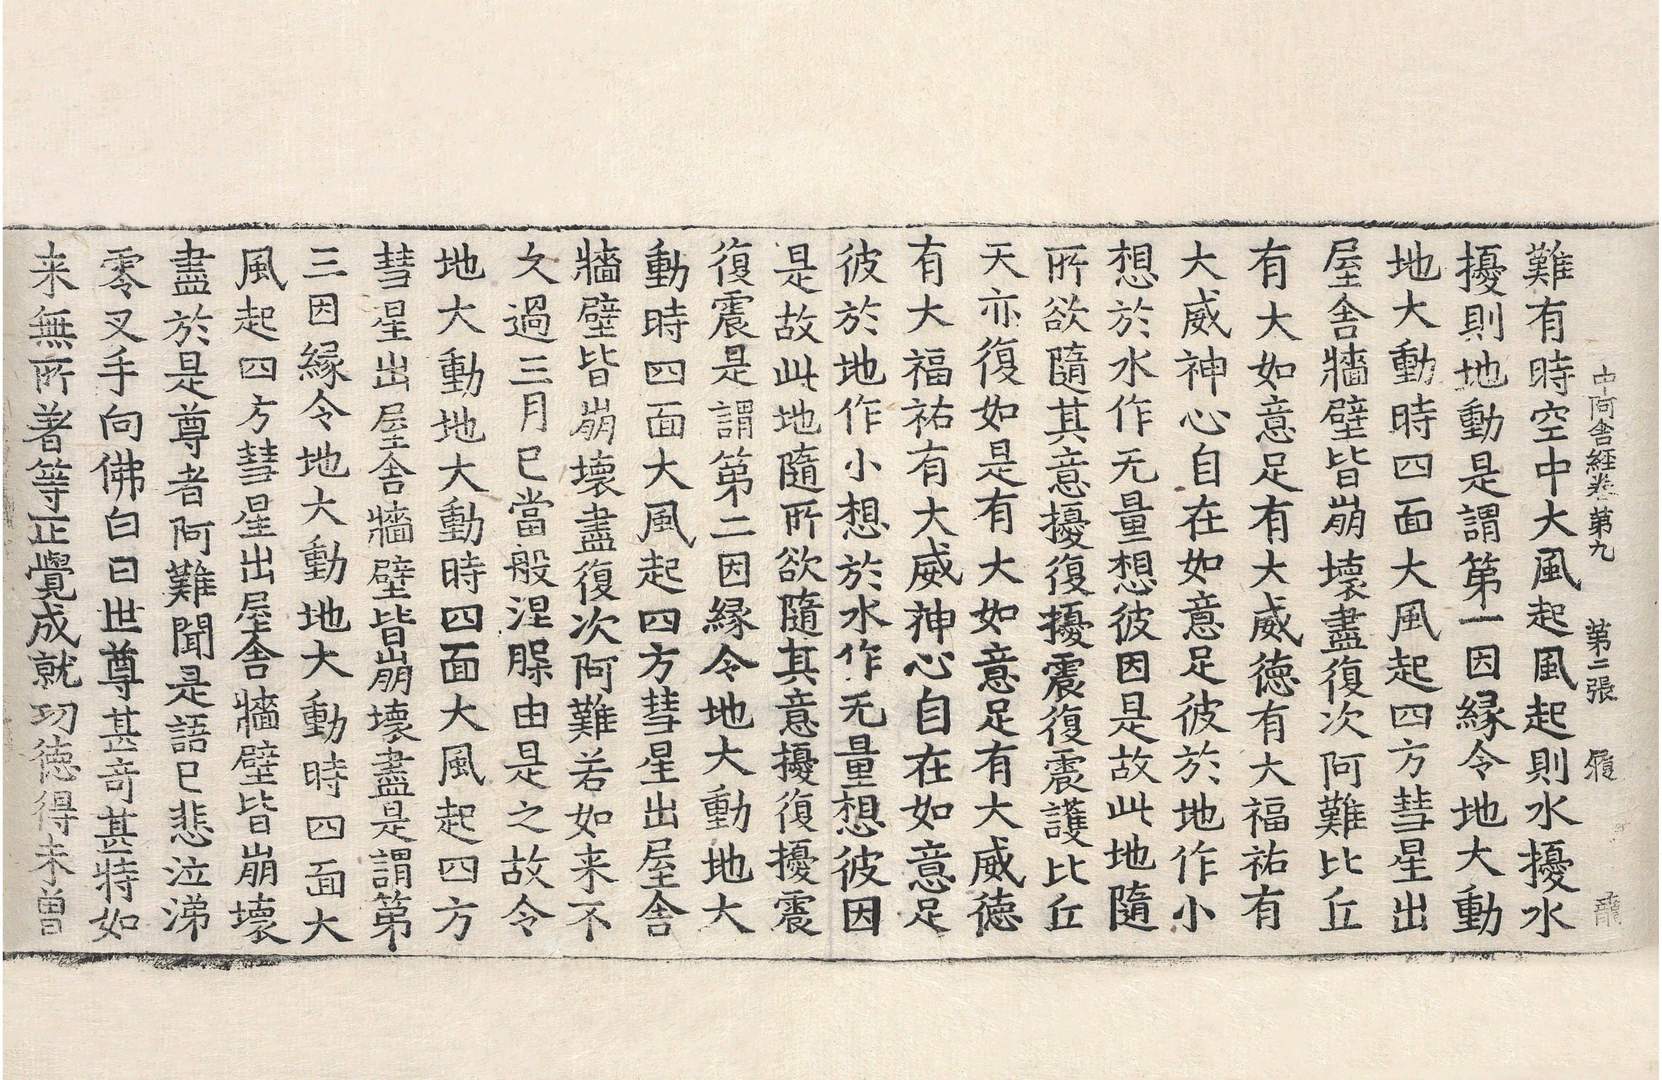 中阿含経卷第九 第二張 履
難有時空中大風起風起則水擾水
擾則地動是謂第一因縁令地大動
地大動時四面大風起四方彗星出
屋舎牆壁皆崩壞盡復次阿難比丘
有大如意足有大威徳有大福祐有
大威神心自在如意足彼於地作小
想於水作无量想彼因是故此地隨
所欲隨其意擾復擾震復震護比丘
天亦復如是有大如意足有大威徳
有大福祐有大威神心自在如意足
彼於地作小想於水作无量想彼因
是故此地隨所欲隨其意擾復擾震
復震是謂第二因縁令地大動地大
動時四面大風起四方彗星出屋舎
牆壁皆崩壞盡復次阿難若如来不
久過三月已當般涅槃由是之故令
地大動地大動時四面大風起四方
彗星出屋舎牆壁皆崩壞盡是謂第
三因縁令地大動地大動時四面大
風起四方彗星出屋舎牆壁皆崩壞
盡於是尊者阿難聞是語已悲泣涕
零叉手向佛白曰世尊甚奇甚特如
来無所著等正覺成就功徳得未曽